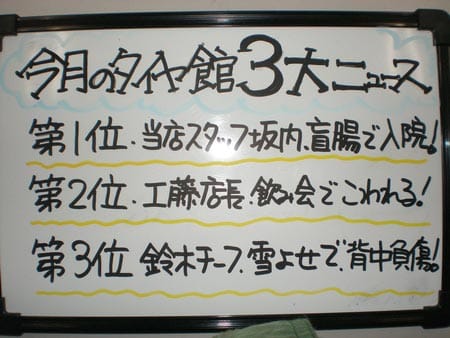 今月のタイヤ館3大ニュース
第1位.当店スタッフ坂内、盲腸で入院!
第2位.工藤店長.飲み会でこわれる!
第3位 鈴木チーフ.雪よせで、背中負傷!